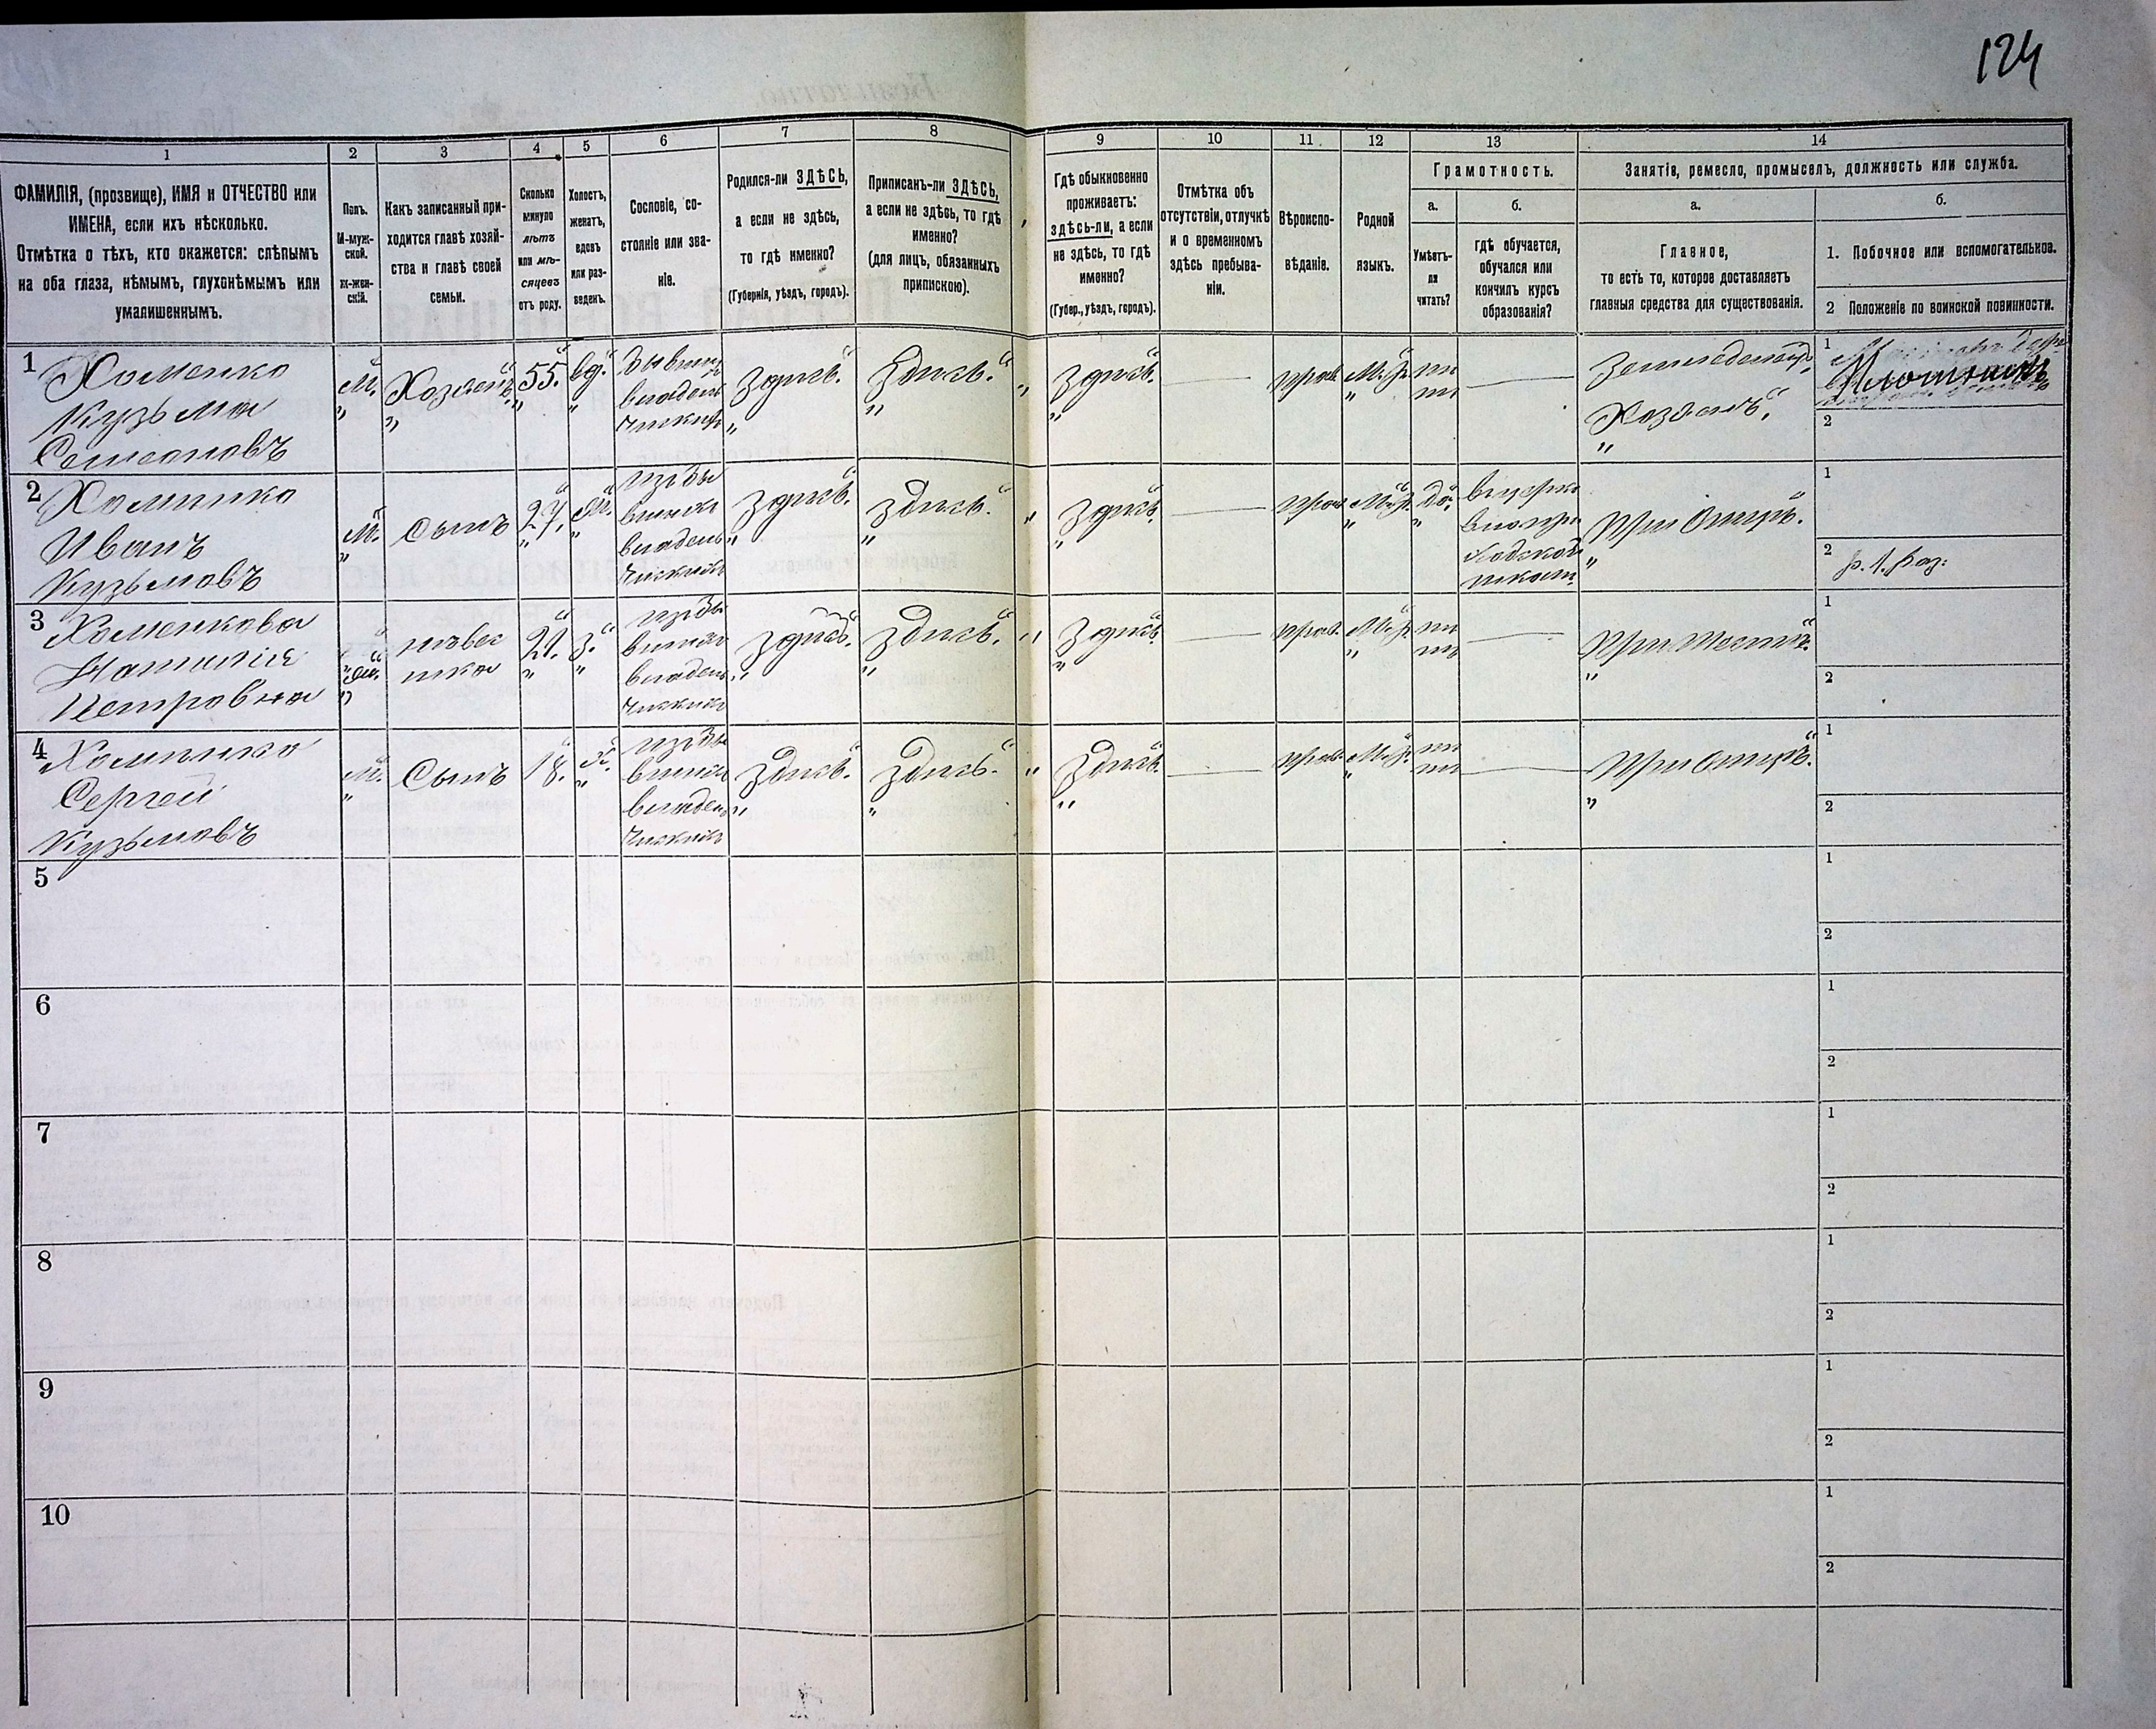 124
1 2 3 4 5 6 7 8 9 10 11 12 13 14
ФАМИЛІЯ, (прозвище), ИМЯ и ОТЧЕСТВО или
ИМЕНА, если ихъ нѣсколько.
Отмѣтка о тѣхъ, кто окажется: слѣпымъ
на оба глаза, нѣмымъ, глухонѣмымъ или
умалишеннымъ.
Полъ.
М-муж-
ской.
ж-жен-
скій.
Какъ записанный при-
ходится главѣ хозяй-
ства и главѣ своей
семьи.
Сколько
минуло
лѣтъ
или мѣ-
сяцевъ
отъ роду.
Холостъ,
женатъ,
вдовъ
или раз-
веденъ.
Сословіе, со-
стояніе или зва-
ніе.
Родился-ли ЗДѢСЬ,
а если не здѣсь,
то гдѣ именно?
(Губернія, уѣздъ, городъ).
Приписанъ-ли ЗДѢСЬ,
а если не здѣсь, то гдѣ
именно?
(для лицъ, обязанныхъ
припискою).
Гдѣ обыкновенно
проживаетъ:
здѣсь-ли, а если
не здѣсь, то гдѣ
именно?
(Губер., уѣздъ, городъ).
Отмѣтка объ
отсутствіи, отлучкѣ
и о временномъ
здѣсь пребыва-
ніи.
Вѣроиспо-
вѣданіе.
Родной
языкъ.
Грамотность.
а.
Умѣетъ-
ли
читать?
б.
гдѣ обучается,
обучался или
кончилъ курсъ
образованія?
Занятіе, ремесло, промыселъ, должность или служба.
а.
Главное,
то есть то, которое доставляетъ
главныя средства для существованія.
б.
1. Побочное или вспомогательное.
2 Положеніе по воинской повинности.
1
Хоменко
Кузьма
Семеоновъ
М.
Хозяинъ
55.
вд.
Бывш
владель
ческихъ
здись.
Здись.
Здись.
прав.
М.р.
ни
ни
Земледелецъ,
Хозяинъ.
1
Плотникъ
2
2
Хоминко
Иванъ
Кузьмовъ
М.
Сынъ
27.
Ж.
изъ бы
вшихъ
владель
ческихъ
здись.
здись.
Здись.
прав.
М.р.
Да.
в церко
вно при
ходской
школи
При Отцѣ.
1
2
р. 1. раз:
3
Хоменкова
Наталія
Петровна
Ж.
невес
тка
21.
З.
изъ бы
вшихъ
владель
ческихъ
здись.
здись.
Здись.
прав.
М.р.
ни
ни
При
1
2
4
Хоминко
Сергей
Кузьмовъ
М.
Сынъ
18.
Х.
изъ бы
вшихъ
владель
ческихъ
Здись.
Здись.
Здись.
прав.
М.р.
ни
ни
При Отцѣ.
1
2
5
1
2
6
1
2
7
1
2
8
1
2
9
1
2
10
1
2